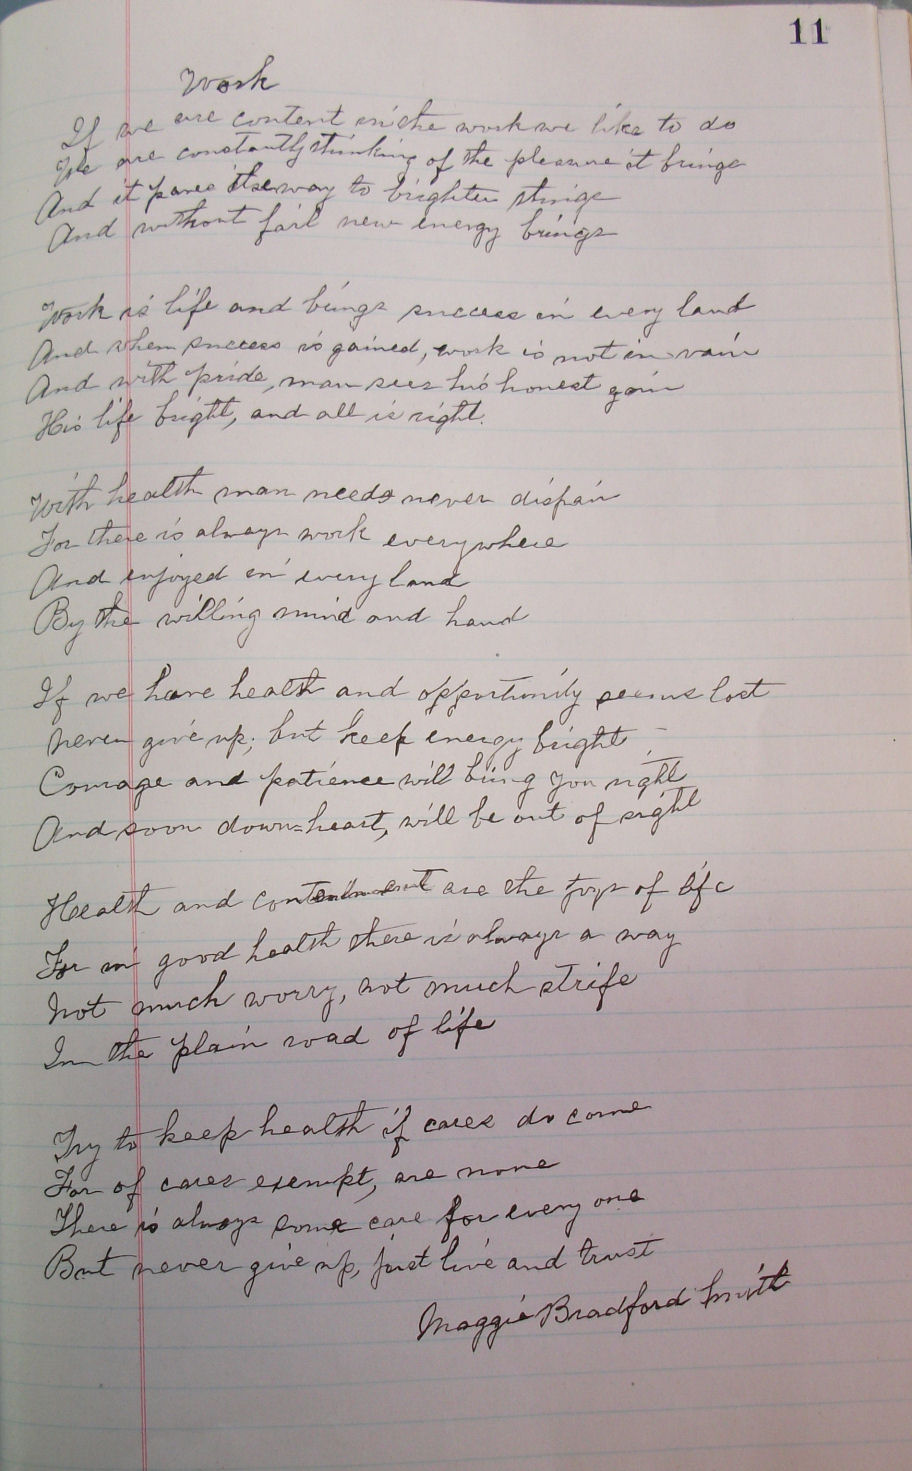 11
Work
If we are content in the work we like to do
We are constantly thinking of the pleasure it brings
And it paves the way to brighter things
And without fail new energy brings
Work is life and brings success in every land
And when success is gained, work is not in vain
And with pride, man sees his honest gain
His life bright, and all is right.
With health man needs never dispair
For there is always work everywhere
And enjoyed in every land
By the willing mind and hand
If we have health and opportunity seems lost
Never give up, but keep energy bright
Courage and patience will bring you right
And soon down-heart, will be out of sight
Health and contentment are the joys of life
For in good health there is always a way
Not much worry, not much strife
In the plain road of life
Try to keep health if cares do come
For of cares exempt, are none
There is always some care for every one
But never give up, just live and trust
Maggie Bradford Smith